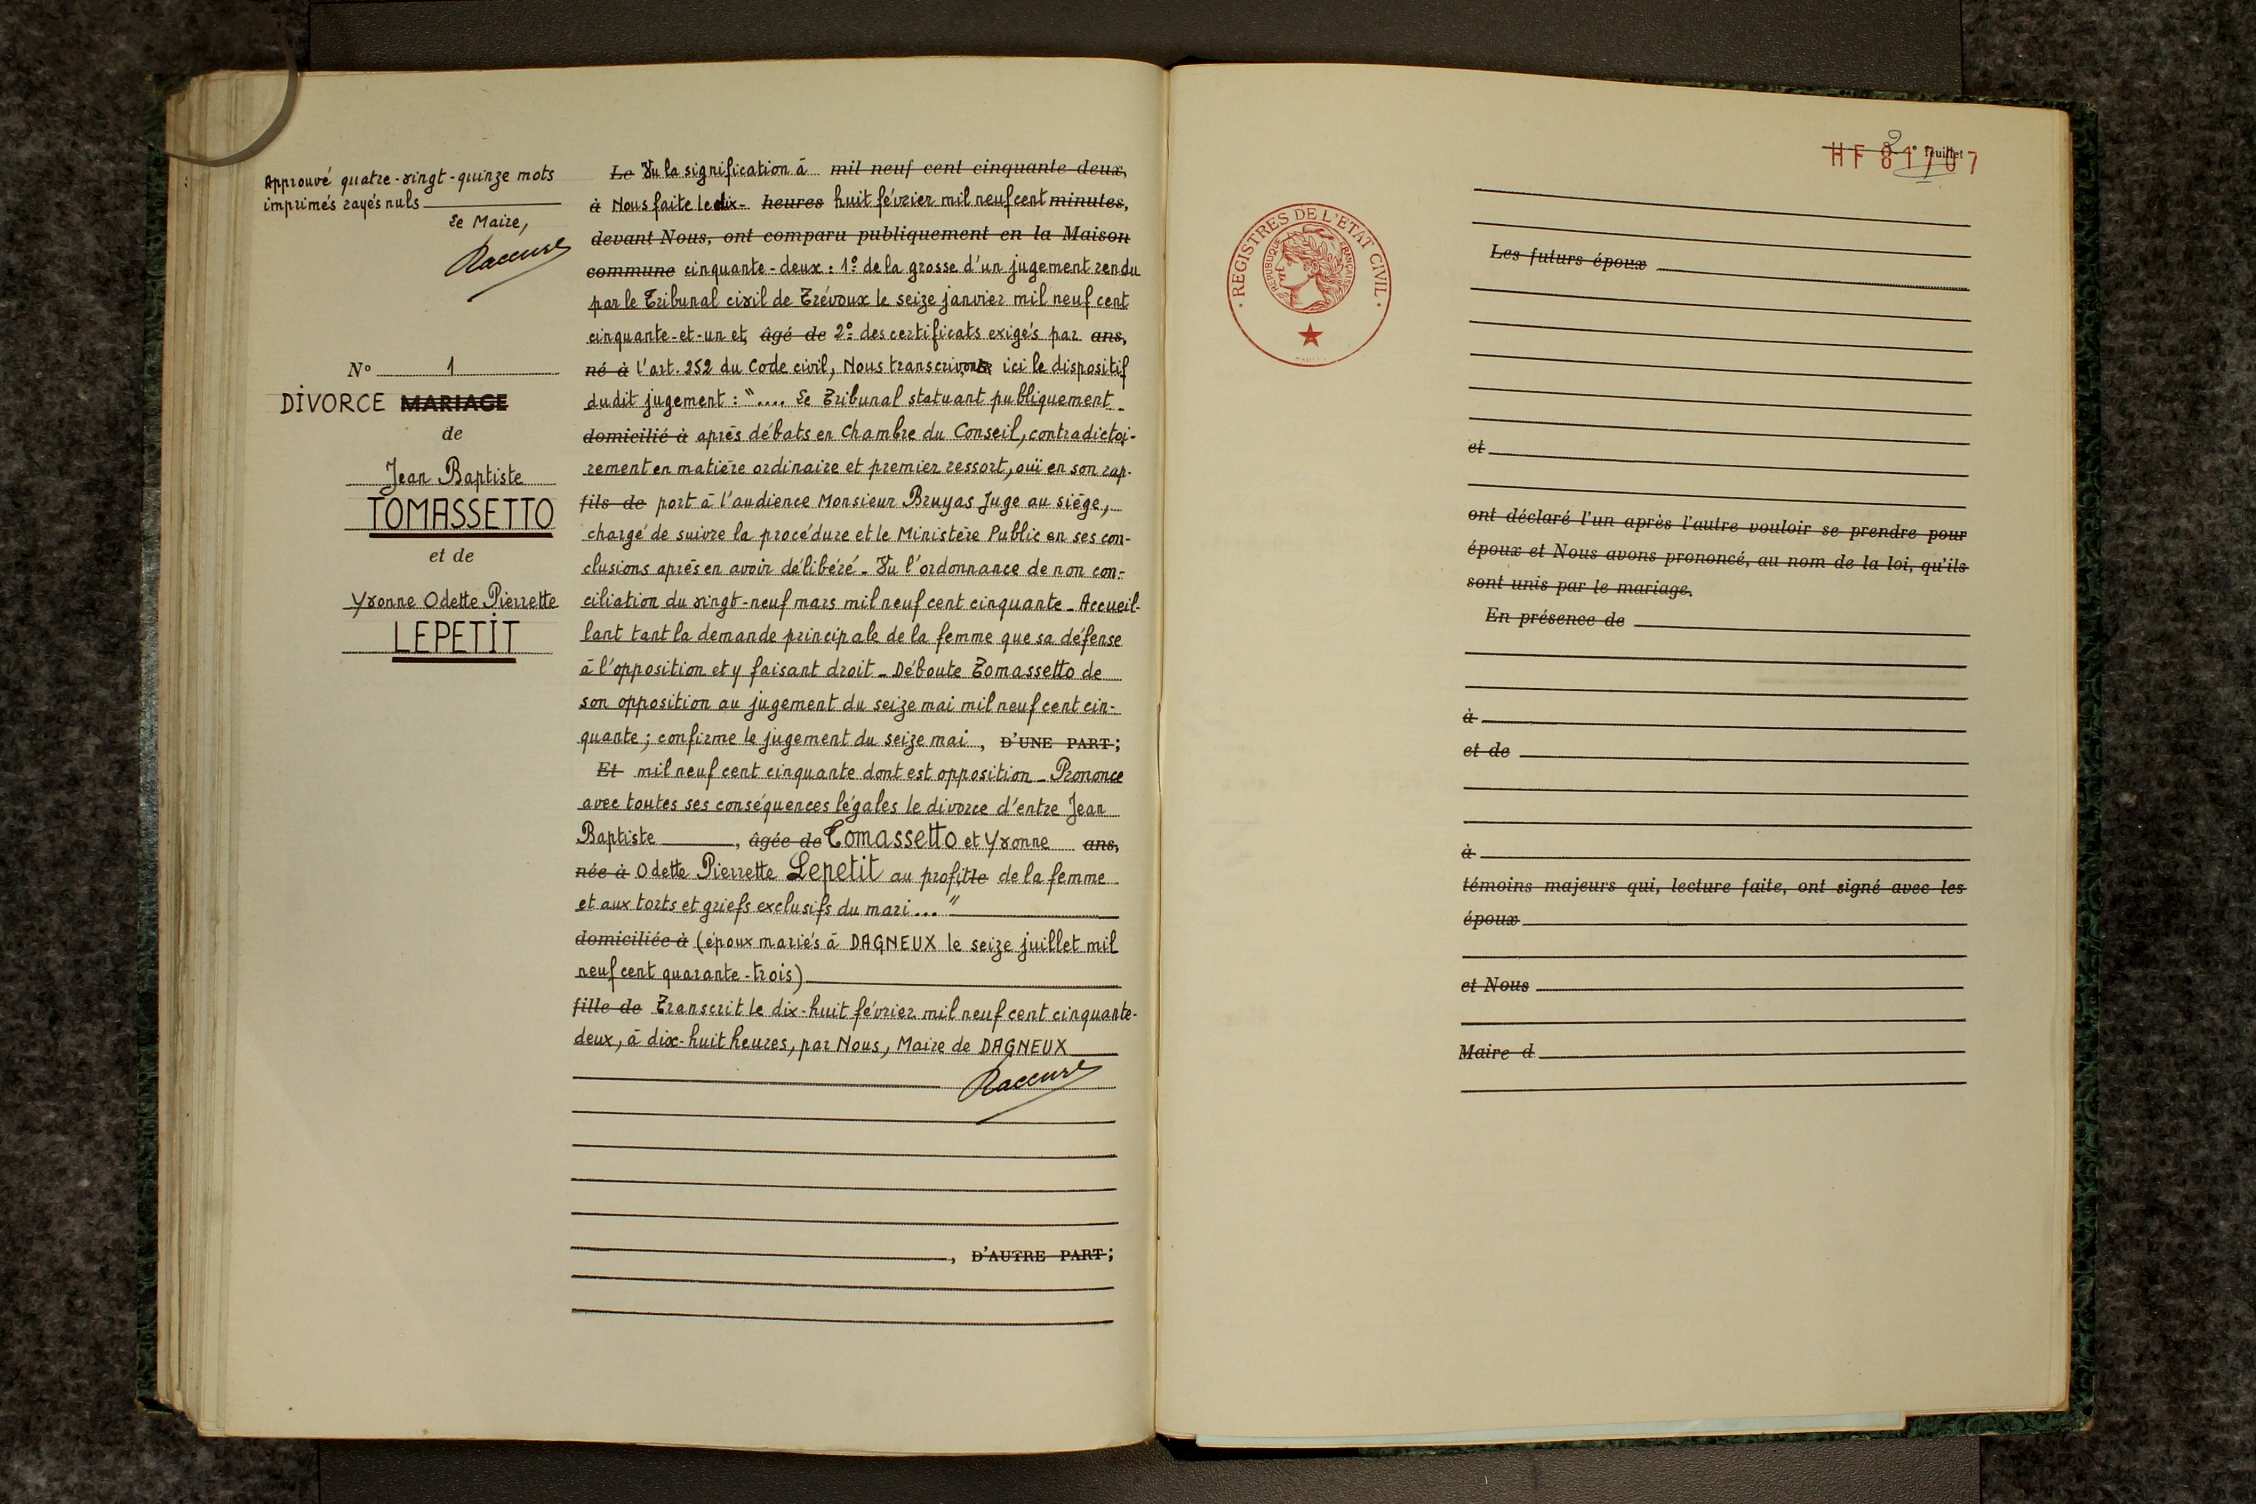 Approuvé quatre-vingt-quinze mots
imprimés rayés nuls
Le Maire,
Raccurt
N° 1
DIVORCE MARIAGE
de
Jean Baptiste
TOMASSETTO
et de
Yvonne Odette Pierrette
LEPETIT
Le Vu la signification à mil neuf cent cinquante deux,
à Nous faite le dix- heures huit février mil neuf cent minutes,
devant Nous, ont comparu publiquement en la Maison
commune cinquante-deux : 1° de la grosse d'un jugement rendu
par le Tribunal civil de Trévoux le seize janvier mil neuf cent
cinquante-et-un et, âgé de 2° des certificats exigés par ans,
né à l'art. 252 du Code civil, Nous transcrivons ici le dispositif
dudit jugement : ".... Le Tribunal statuant publiquement
domicilié à après débats en Chambre du Conseil, contradictoi-
rement en matière ordinaire et premier ressort, ouï en son rap-
fils de port à l'audience Monsieur Bruyas Juge au siège,
chargé de suivre la procédure et le Ministère Public en ses con-
clusions après en avoir délibéré - Vu l'ordonnance de non con-
ciliation du vingt-neuf mars mil neuf cent cinquante - Accueil-
lant tant la demande principale de la femme que sa défense
à l'opposition et y faisant droit - Déboute Tomassetto de
son opposition au jugement du seize mai mil neuf cent cin-
quante ; confirme le jugement du seize mai , D'UNE PART ;
Et mil neuf cent cinquante dont est opposition - Prononce
avec toutes ses conséquences légales le divorce d'entre Jean
Baptiste , âgée de Tomassetto et Yvonne ans,
née à Odette Pierrette Lepetit au profit le de la femme
et aux torts et griefs exclusifs du mari... "
domiciliée à (époux mariés à DAGNEUX le seize juillet mil
neuf cent quarante-trois)
fille de Transcrit le dix-huit février mil neuf cent cinquante-
deux, à dix-huit heures, par Nous, Maire de DAGNEUX
Raccurt
, D'AUTRE PART ;
REGISTRES DE L'ETAT CIVIL
REPUBLIQUE FRANÇAISE
2
HF 81707
feuillet
Les futurs époux
et
ont déclaré l'un après l'autre vouloir se prendre pour
époux et Nous avons prononcé, au nom de la loi, qu'ils
sont unis par le mariage.
En présence de
à
et de
à
témoins majeurs qui, lecture faite, ont signé avec les
époux
et Nous
Maire d